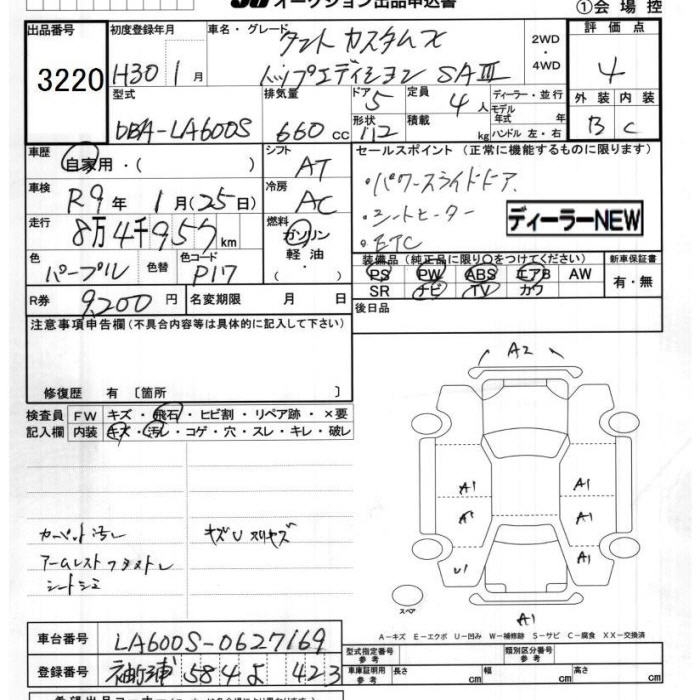 オークション出品申込書
①会場控
出品番号
3220
初度登録年月
H30 1月
車名・グレード
タント カスタムX
トップエディション SAⅢ
2WD
・4WD
評価点
4
型式
DBA-LA600S
排気量
660 cc
ドア 5
形状 112
定員 4人
積載 kg
ディーラー・並行
モデル年式 年
ハンドル 左・右
外装 内装
B C
車歴
自家用・( )
シフト
AT
セールスポイント(正常に機能するものに限ります)
・パワースライドドア
・シートヒーター
・ETC
ディーラーNEW
車検
R9年 1月(25日)
冷房
AC
走行
8万4千957km
燃料
ガソリン
軽油・
( )
色
パープル
色替
色コード
P17
装備品(純正品に限り○をつけてください)
PS PW ABS エアB AW
SR ナビ TV カワ
新車保証書
有・無
R券
9,200円
名変期限 月 日
後日品
注意事項申告欄(不具合内容等は具体的に記入して下さい)
修復歴 有 〔箇所 〕
検査員
記入欄
FW キズ・飛石・ヒビ割・リペア跡・×要
内装 キズ・汚レ・コゲ・穴・スレ・キレ・破レ
カーペット汚レ
アームレスト
シートシミ
キズU スリキズ
A2
A1
A1
A1
A1
A1
U1
A1
A1
スペア
A-キズ E-エクボ U-凹み W-補修跡 S-サビ C-腐食 XX-交換済
車台番号
LA600S-0627169
登録番号
袖ヶ浦 584 よ 423
型式指定番号
参考
類別区分番号
参考
車庫証明用
参考
長さ cm 幅 cm 高さ cm